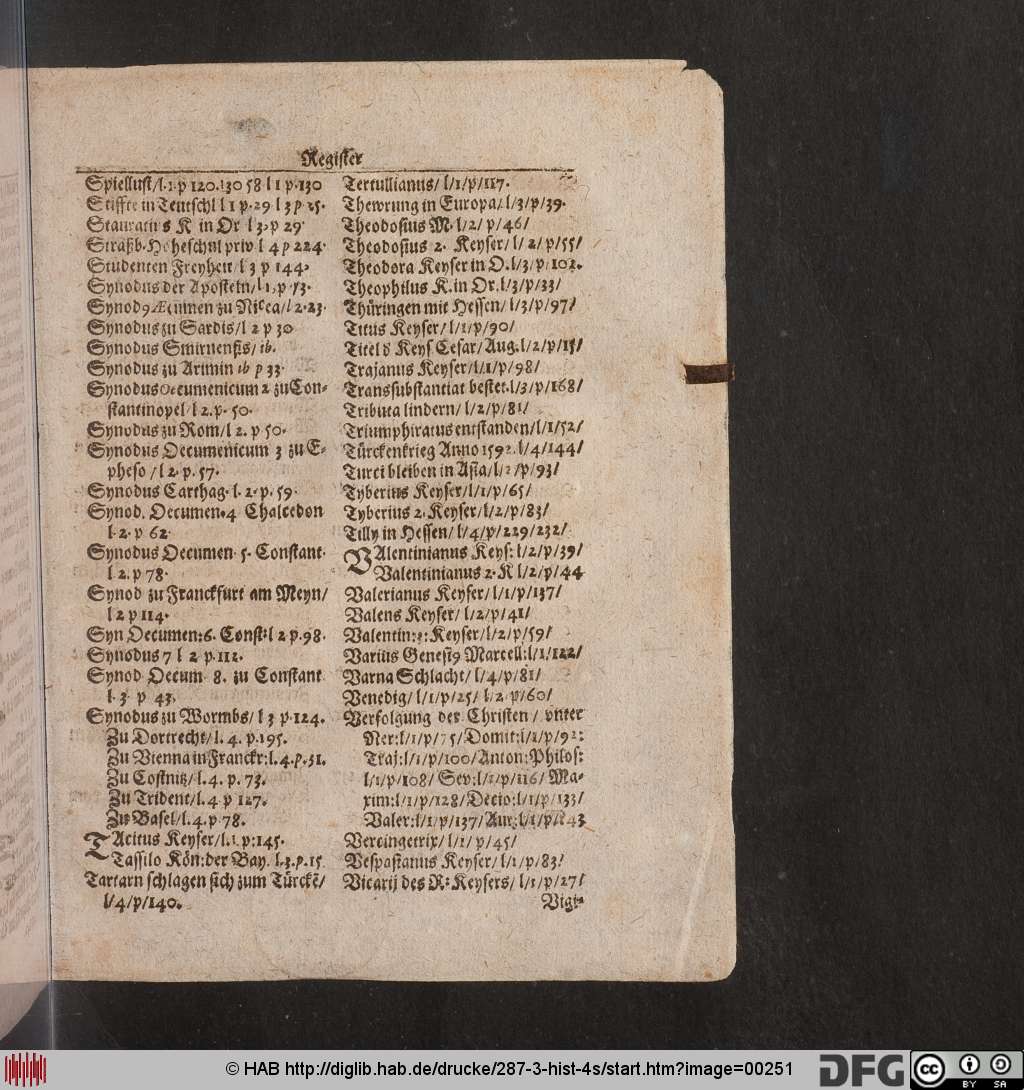 Register
Spiellust/l.1.p 120.130 58 l 1 p.130
Stiffte in Teutschl l 1 p.29 l 3 p 25.
Stauratius K in Or l 3 p 29
Straßb. Hoheschul priv l 4 p 224
Studenten Freyheit/l 3 p 144.
Synodus der Aposteln/l 1, p 73.
Synod9 Æcumen zu Nicea/l 2.23.
Synodus zu Sardis/l 2 p 30
Synodus Smirnensis/ ib.
Synodus zu Arimin ib p 33.
Synodus Oecumenicum 2 zu Con-
stantinopel/l 2. p. 50.
Synodus zu Rom/l 2. p 50.
Synodus Oecumenicum 3 zu E-
pheso /l 2. p. 57.
Synodus Carthag. l. 2. p. 59
Synod. Oecumen.4 Chalcedon
l. 2. p 62.
Synodus Oecumen. 5. Constant.
l 2. p 78.
Synod zu Franckfurt am Meyn/
l 2 p 114.
Syn Oecumen:6. Const: l 2 p.98.
Synodus 7 l 2 p.112.
Synod Oecum 8. zu Constant
l. 3 p 43.
Synodus zu Wormbs/l 3 p.124.
Zu Dortrecht/l. 4. p.195.
Zu Vienna in Franckr:l.4.p.51.
Zu Costnitz/l. 4. p. 73.
Zu Trident/l. 4 p 127.
Zu Basel/l. 4. p. 78.
TAcitus Keyser/l.1.p:145.
Tassilo Kön:der Bay. l.3.p.15
Tartarn schlagen sich zum Türckẽ/
l/4/p/140.
Tertullianus/ l/1/p/117.
Thewrung in Europa/l/3/p/39.
Theodosius M. l/2/ p/46/
Theodosius 2. Keyser/ l/ 2/ p/55/
Theodora Keyser in O. l/3/p/102.
Theophilus K. in Or. l/3/p/33/
Thüringen mit Hessen/ l/3/p/97/
Titus Keyser/ l/1/p/90/
Titel d Keys Cesar/ Aug. l/2/p/15/
Trajanus Keyser/ l/1/p/98/
Transsubstantiat bestet. l/3/p/168/
Tributa lindern/ l/2/p/81/
Triumphiratus entstanden/l/1/52/
Türckenkrieg Anno 1592. l/4/144/
Turci bleiben in Asia/l/2/p/93/
Tyberius Keyser/ l/1/p/65/
Tyberius 2. Keyser/ l/2/p/83/
Tilly in Hessen/ l/4/p/229/232/
VAlentinianus Keys: l/2/p/39/
Valentinianus 2. K l/2/p/44
Valerianus Keyser/ l/1/p/137/
Valens Keyser/ l/2/p/41/
Valentin:3: Keyser/l/2/p/59/
Varius Genesi9 Marcell:l/1/122/
Varna Schlacht/ l/4/p/81/
Venedig/ l/1/p/25/ l/2 p/60/
Verfolgung der Christen / vnter
Ner:l/1/p/75/Domit:l/1/p/92:
Traj:l/1/p/100/Anton:Philos:
l/1/p/108/ Sev:l/1/p/116/ Ma-
xim:l/1/p/128/Decio:l/1/p/133/
Valer:l/1/p/137/ Aur:l/1/p/143
Vercingetrix/ l/1/ p/45/
Vespasianus Keyser/ l/1/p/83/
Vicarij des R: Keysers/ l/1/p/27/
Vigi-
© HAB http://diglib.hab.de/drucke/287-3-hist-4s/start.htm?image=00251
DFG
cc
BY SA